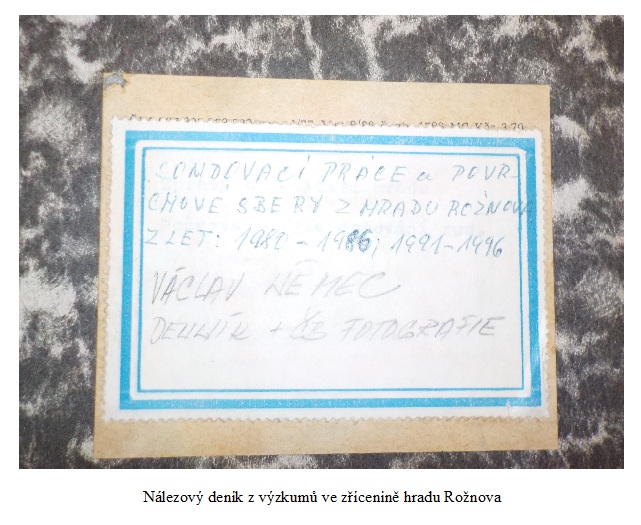 SONDOVACÍ PRÁCE a POVR-
CHOVÉ SBĚRY Z HRADU ROŽNOVA
Z LET: 1980 - 1986; 1991-1996
VÁCLAV NĚMEC
DENNÍK + ČB FOTOGRAFIE
Nálezový deník z výzkumů ve zřícenině hradu Rožnova